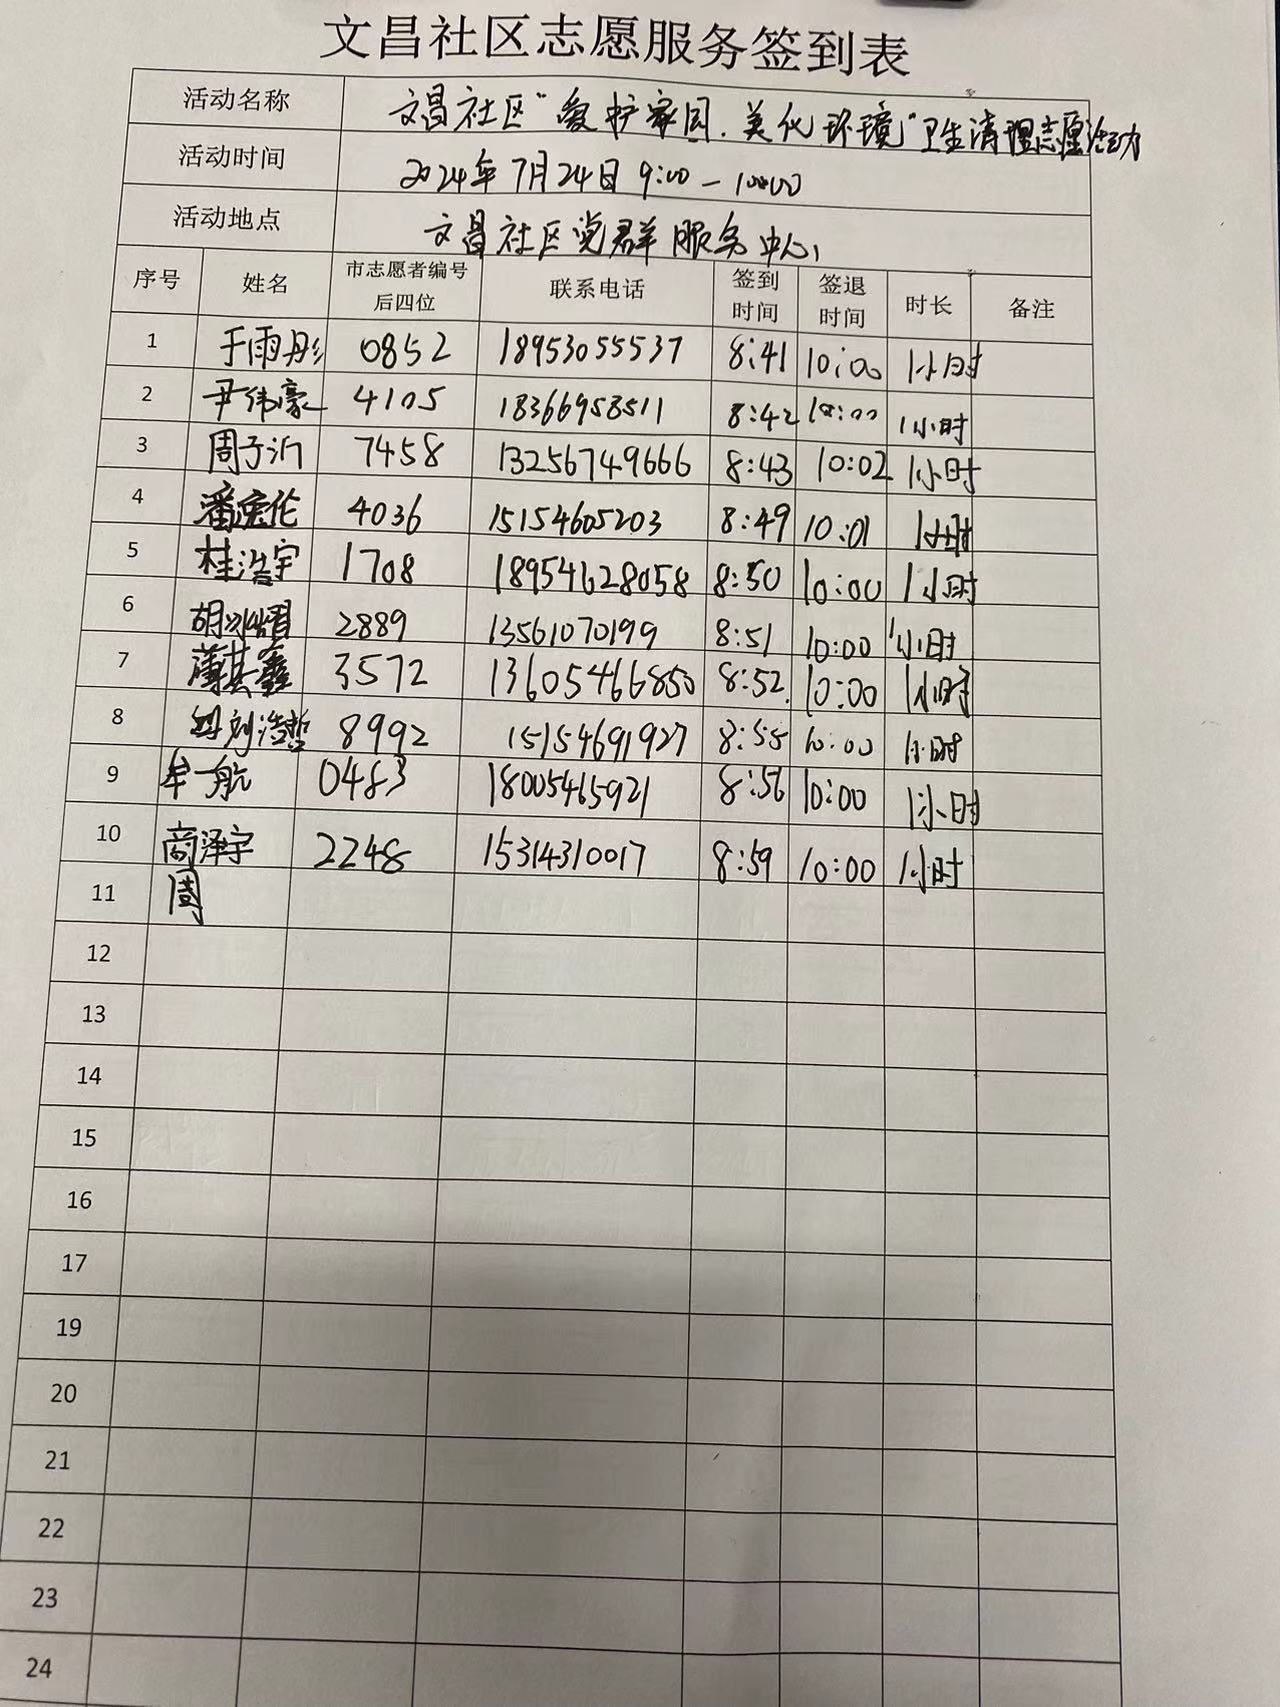 文昌社区志愿服务签到表
活动名称 文昌社区“爱护家园、美化环境”卫生清理志愿活动
活动时间 2024年7月24日 9:00-10:00
活动地点 文昌社区党群服务中心
序号 姓名 市志愿者编号后四位 联系电话 签到时间 签退时间 时长 备注
1 于雨彤 0852 18953055537 8:41 10:00 1小时
2 尹伟豪 4105 18366958511 8:42 10:00 1小时
3 周子沂 7458 13256749666 8:43 10:02 1小时
4 潘 伦 4036 15154605203 8:49 10:01 1小时
5 桂浩宇 1708 18954628058 8:50 10:00 1小时
6 胡 2889 13561070199 8:51 10:00 1小时
7 薄其鑫 3572 13605466850 8:52 10:00 1小时
8 刘浩哲 8992 15154691927 8:55 10:00 1小时
9 牟一航 0483 18005465921 8:56 10:00 1小时
10 商泽宇 2248 15314310017 8:59 10:00 1小时
11 周
12
13
14
15
16
17
19
20
21
22
23
24